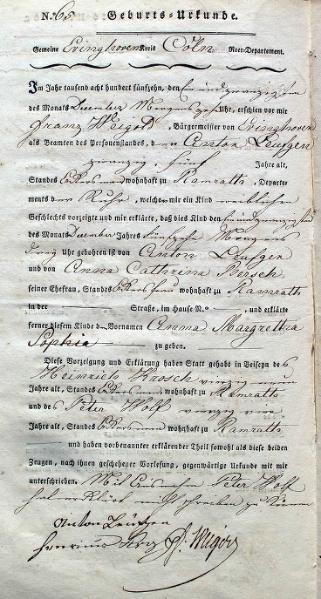 N. 65. Geburts-Urkunde.
Gemeine Evinghoven Kreis Cöln Roer-Departement.
Im Jahr tausend acht hundert fünfzehn, den
des Monats December Morgens Uhr, erschien vor mir
Franz Weigold, Bürgermeister von Evinghoven
als Beamten des Personenstandes, der Anton Leufgen
zwanzig fünf Jahre alt,
Standes Ackersmann wohnhaft zu Ramrath, Departe-
ments der Ruhr, welcher mir ein Kind weiblichen
Geschlechts vorzeigte und mir erklärte, daß dies Kind den
des Monats December Jahres fünfzehn Morgens
drey Uhr gebohren ist von Anton Leufgen
und von Anna Catharina Bersch
seiner Ehefrau, Standes wohnhaft zu Ramrath
in der Straße, im Hause N.° und erklärte
ferner diesem Kinde die Vornamen Anna Margretha
Sophia zu geben.
Diese Vorzeigung und Erklärung haben Statt gehabt in Beiseyn des
Heinrich Krosch vierzig neun
Jahre alt, Standes Ackersmann wohnhaft zu Ramrath
und des Peter Wolf vierzig
Jahre alt, Standes Ackersmann wohnhaft zu Ramrath
und haben vorbenannter erklärender Theil sowohl als diese beiden
Zeugen, nach ihnen geschehener Vorlesung, gegenwärtige Urkunde mit mir
unterschrieben. Mit Peter Wolf
hat erklärt schreiben zu können
Anton Leufgen